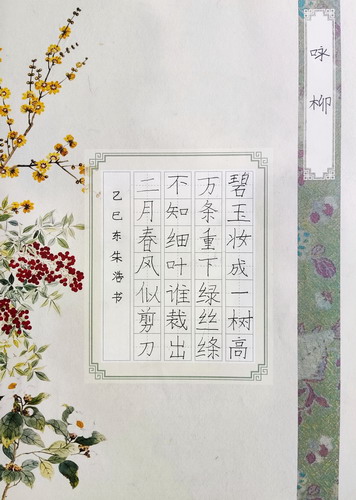 咏柳
碧玉妆成一树高
万条垂下绿丝绦
不知细叶谁裁出
二月春风似剪刀
乙巳东朱浩书